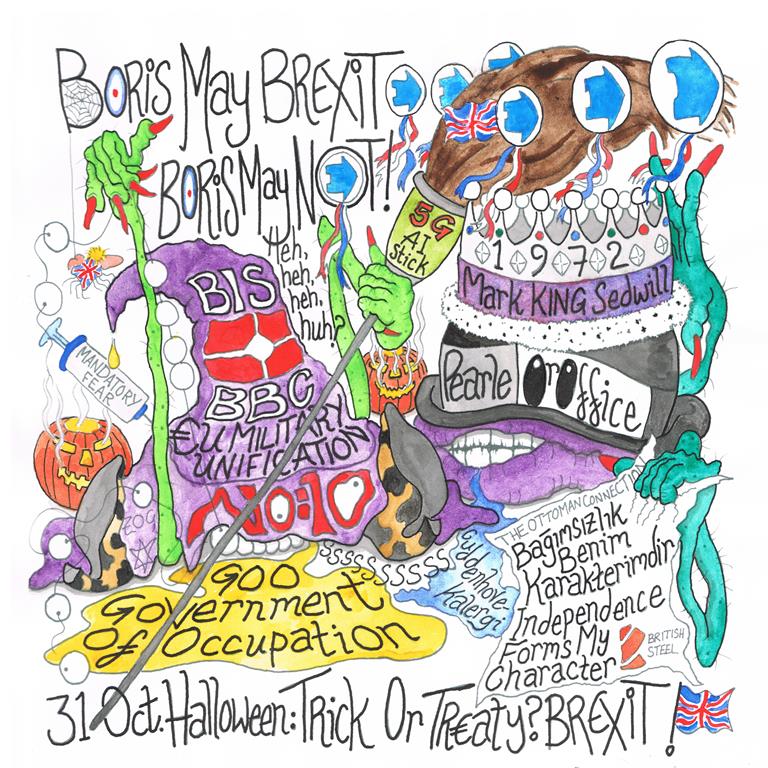 BORiS May BREXiT
BORiS May NOT!
Heh,
heh,
heh,
huh?
5G
AI
Stick
1972
Mark KING Sedwill
Pearle Or Office
BIS
BBC
€U MILITARY
UNIFICATION
MANDATORY
FEAR
NO:10
ZOG
SSSSSSSSSSS
GOO
Government
Of Occupation
Coudenhove
Kalergi
THE OTTOMAN CONNECTION
Bağımsızlık
Benim
Karakterimdir
Independence
Forms My
Character
BRITISH
STEEL
31 Oct. Halloween: Trick Or TR€aty? BREXiT!